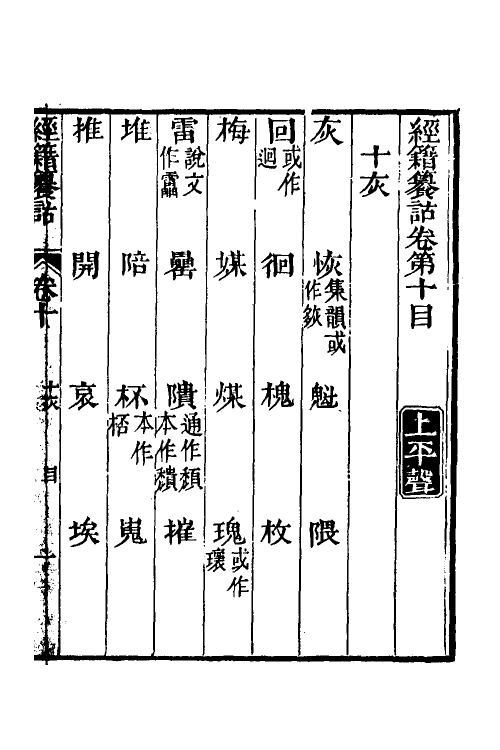 經籍籑詁卷第十目 上平聲
十灰
灰 恢集韻或作㷇 魁 隈
回或作迴 徊 槐 枚
梅 媒 煤 瑰或作瓌
雷說文作靁 罍 隤通作頹本作穨 摧
堆 陪 杯本作桮 嵬
推 開 哀 埃
經籍籑詁 卷十 十灰 目 一